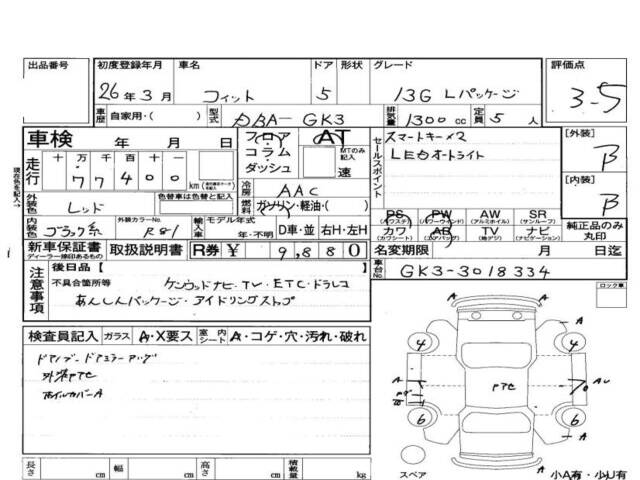 出品番号 初度登録年月 車名 ドア 形状 グレード 評価点
26年3月 フィット 5 13G Lパッケージ 3-5
車歴 自家用・( ) 型式 DBA-GK3 排気量 1300cc 定員 5人
車検 年 月 日 フロア AT スマートキー×2 [外装]
コラム MTのみ記入 セールスポイント LEDオートライト B
走行 十万千百十 77400 km ダッシュ 速
[内装]
現在色を記入→ 外装色 色替車は色替と記入 冷房 AAC B
レッド 燃料 ガソリン・軽油・( )
PS PW AW SR 純正品のみ丸印
(パワステ) (パワーウインド) (アルミホイル) (サンルーフ)
内装色 ブラック系 外装カラーNo. R81 輸入車 モデル年式 年・不明 D車・並 右H・左H カワ AB TV ナビ
(カワシート) (エアバッグ) (地デジ) (ナビゲーション)
新車保証書 取扱説明書 R券 ¥ 9,880 名変期限 月 日迄
ディーラー捺印あるもの
注意事項 後日品( ) 車台No. GK3-3018334
不具合箇所等 ケンウッドナビ・TV・ETC・ドラレコ
あんしんパッケージ・アイドリングストップ
ロック車
検査員記入 ガラス A・X要ス 室内シート A・コゲ・穴・汚れ・破れ
外装PTC
ホイルカバーA
A
4 4
A PTC A
6 6
A
スペア
A
長さ cm 幅 cm 高さ cm 積載量 kg 小A有・少U有